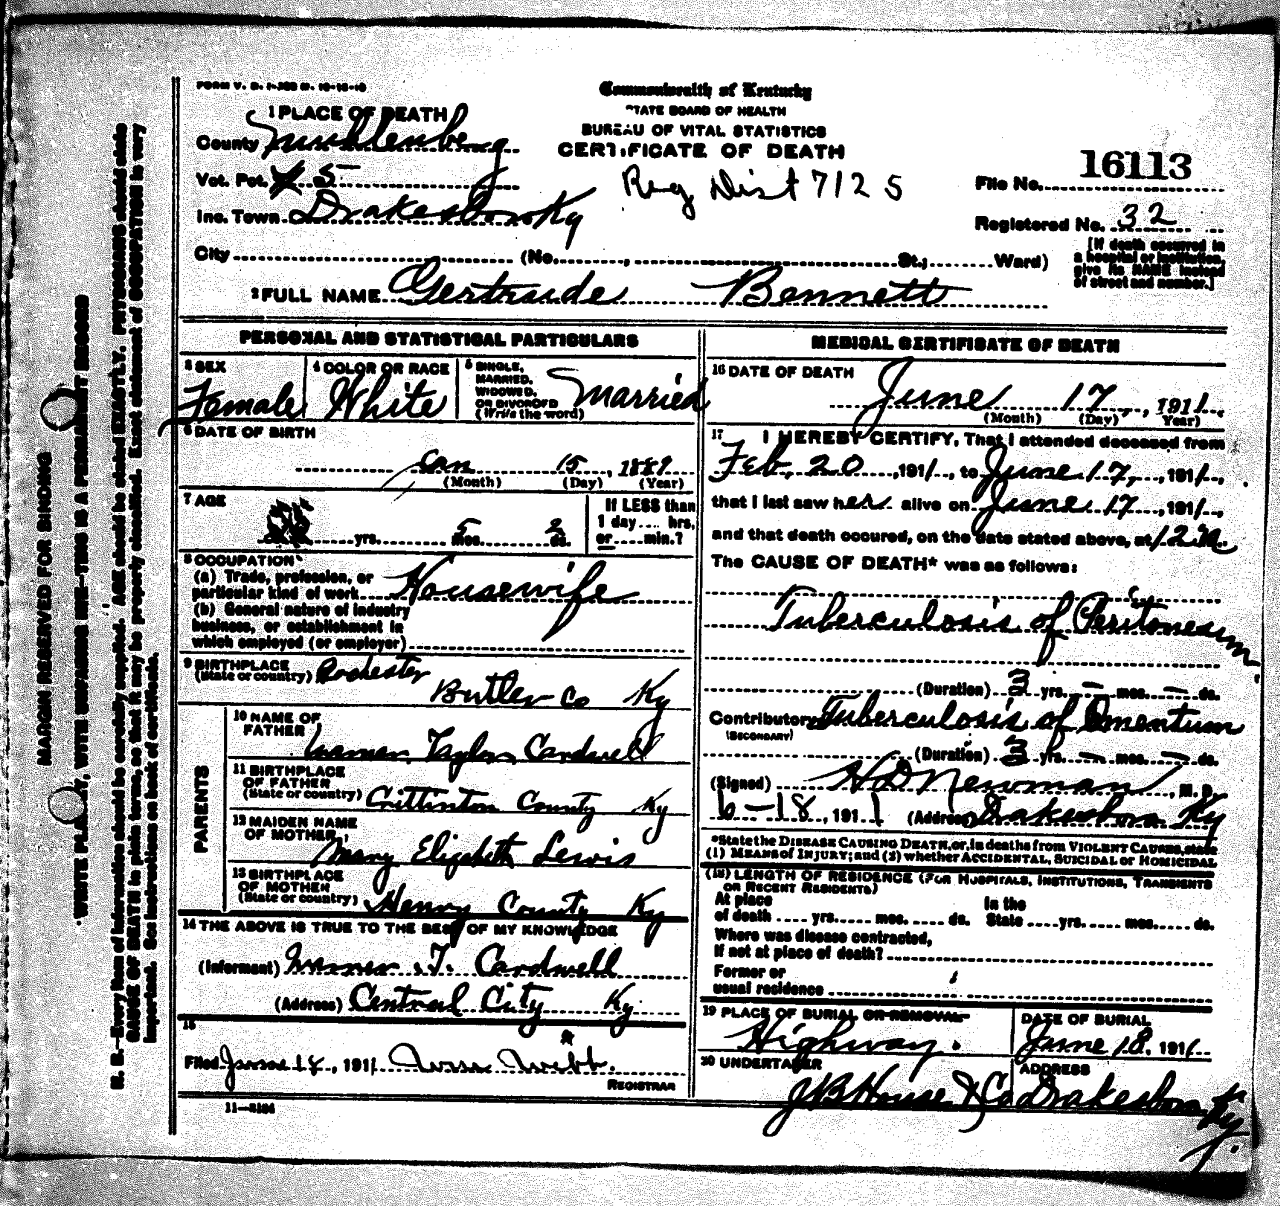 FORM V. S. 1-
Commonwealth of Kentucky
STATE BOARD OF HEALTH
BUREAU OF VITAL STATISTICS
CERTIFICATE OF DEATH
1 PLACE OF DEATH
County Muhlenberg
Vot. Pct. 5
Inc. Town Drakesboro Ky
Reg Dist 7125
File No. 16113
Registered No. 32
City (No. , St.; Ward)
[If death occurred in
a hospital or institution,
give its NAME instead
of street and number.]
2 FULL NAME Gertrude Bennett
PERSONAL AND STATISTICAL PARTICULARS
3 SEX
Female
4 COLOR OR RACE
White
5 SINGLE,
MARRIED,
WIDOWED,
OR DIVORCED
(Write the word)
Married
6 DATE OF BIRTH
Jan 15, 1889
(Month) (Day) (Year)
7 AGE
yrs. 5 mos. 2 ds.
If LESS than
1 day.... hrs.
or.....min.?
8 OCCUPATION
(a) Trade, profession, or
particular kind of work Housewife
(b) General nature of industry
business, or establishment in
which employed (or employer)
9 BIRTHPLACE
(State or country) Rochester
Butler Co Ky
PARENTS
10 NAME OF
FATHER
Taylor Cardwell
11 BIRTHPLACE
OF FATHER
(State or country) Crittinton County Ky
12 MAIDEN NAME
OF MOTHER
Mary Elizabeth Lewis
13 BIRTHPLACE
OF MOTHER
(State or country) Henry County Ky
14 THE ABOVE IS TRUE TO THE BEST OF MY KNOWLEDGE
(Informant) T. Cardwell
(Address) Central City Ky
15
Filed June 18, 1911 Webb.
REGISTRAR
11-
MEDICAL CERTIFICATE OF DEATH
16 DATE OF DEATH
June 17, 1911
(Month) (Day) Year)
17 I HEREBY CERTIFY, That I attended deceased from
Feb, 20, 1911, to June 17, 1911,
that I last saw her alive on June 17, 1911,
and that death occured, on the date stated above, at 12 M.
The CAUSE OF DEATH* was as follows:
Tuberculosis of Peritoneum
(Duration) 3 yrs. – mos. – ds.
Contributory Tuberculosis of Omentum
(SECONDARY)
(Duration) 3 yrs. – mos. – ds.
(Signed) H D Newman, M. D.
6-18, 1911 (Address) Drakesboro Ky
*State the DISEASE CAUSING DEATH, or, in deaths from VIOLENT CAUSES, state
(1) MEANS of INJURY; and (2) whether ACCIDENTAL, SUICIDAL or HOMICIDAL
(18) LENGTH OF RESIDENCE (FOR HOSPITALS, INSTITUTIONS, TRANSIENTS
OR RECENT RESIDENTS)
At place
of death .... yrs..... mos. ..... ds.
In the
State .....yrs..... mos...... ds.
Where was disease contracted,
If not at place of death?
Former or
usual residence
19 PLACE OF BURIAL OR REMOVAL
Highway.
DATE OF BURIAL
June 18, 1911
20 UNDERTAKER
J B House & Co
ADDRESS
Drakesboro Ky.
MARGIN RESERVED FOR BINDING
WRITE PLAINLY, WITH UNFADING INK—THIS IS A PERMANENT RECORD
N. B.—Every item of information should be carefully supplied. AGE should be stated EXACTLY. PHYSICIANS should state
CAUSE OF DEATH in plain terms, so that it may be properly classified. Exact statement of OCCUPATION is very
important. See instructions on back of certificate.